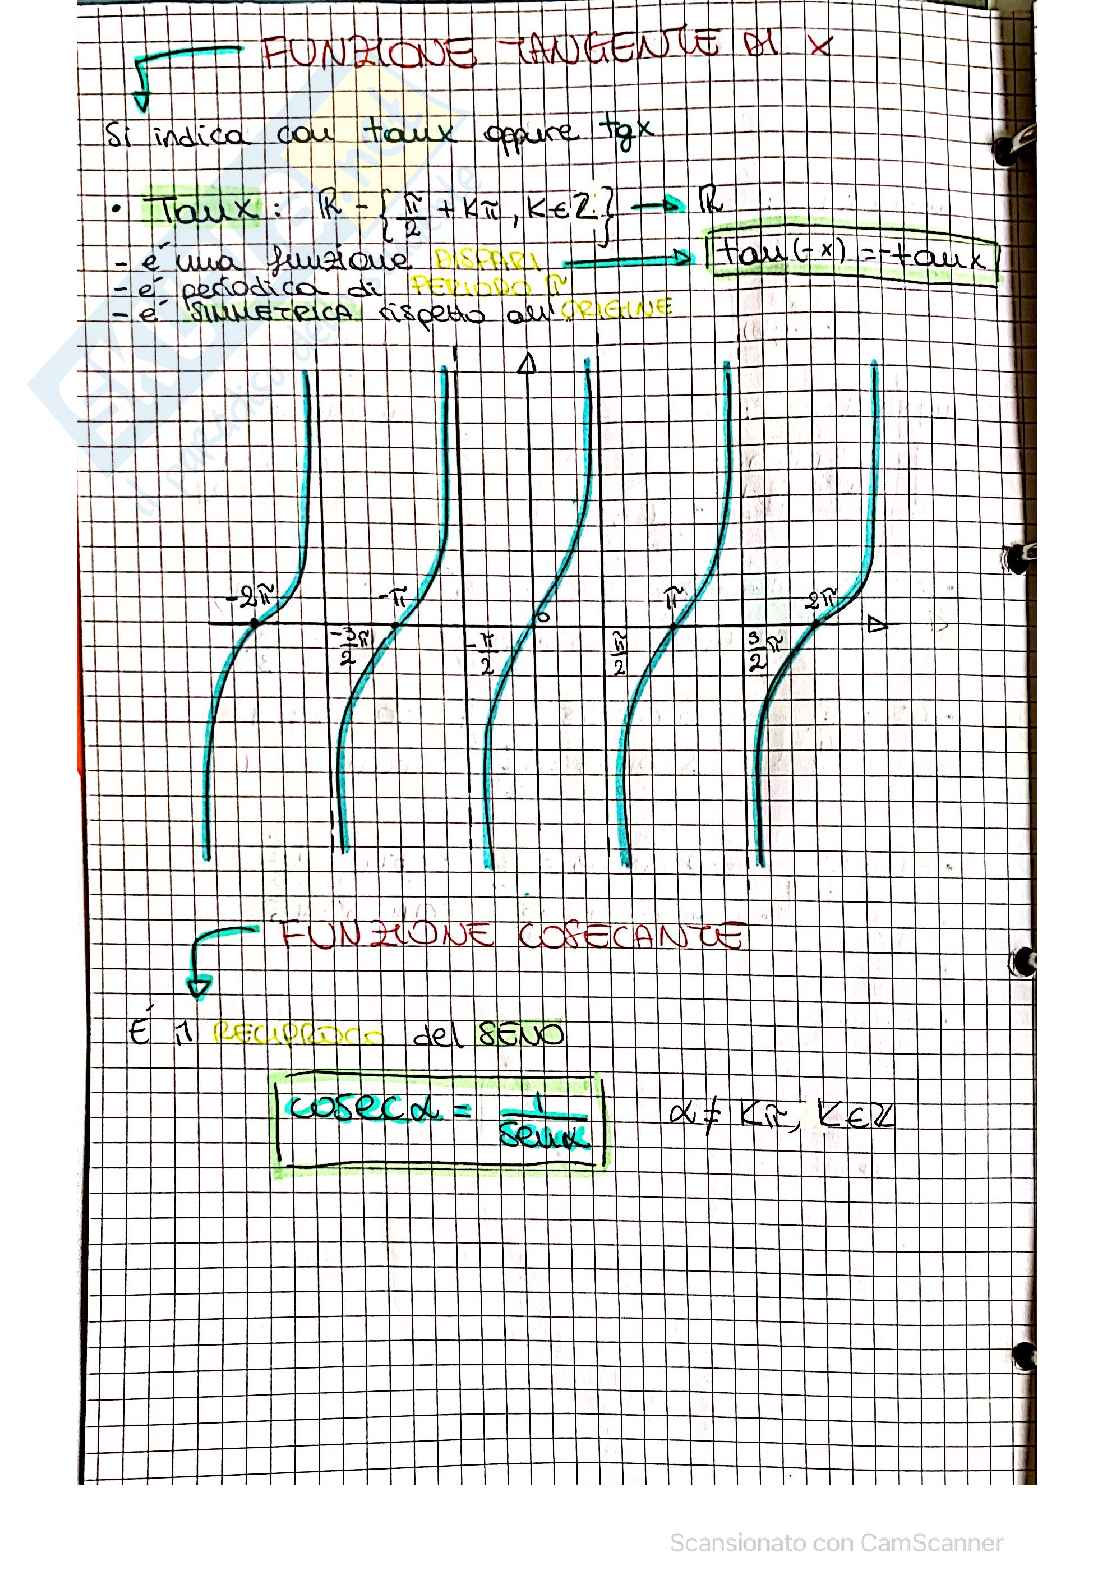 FUNZIONE TANGENTE DI X
Si indica con tanx oppure tgx
• Tanx: ℝ - {π/2 + Kπ, K∈ℤ} → ℝ
- é una funzione DISPARI → tan(-x) = -tanx
- é periodica di PERIODO π
- é SIMMETRICA rispetto all'ORIGINE
-2π -π 0 π 2π
-3/2 π -π/2 π/2 3/2 π
FUNZIONE COSECANTE
É il RECIPROCO del SENO
cosecα = 1/senα α ≠ Kπ, K∈ℤ
Scansionato con CamScanner